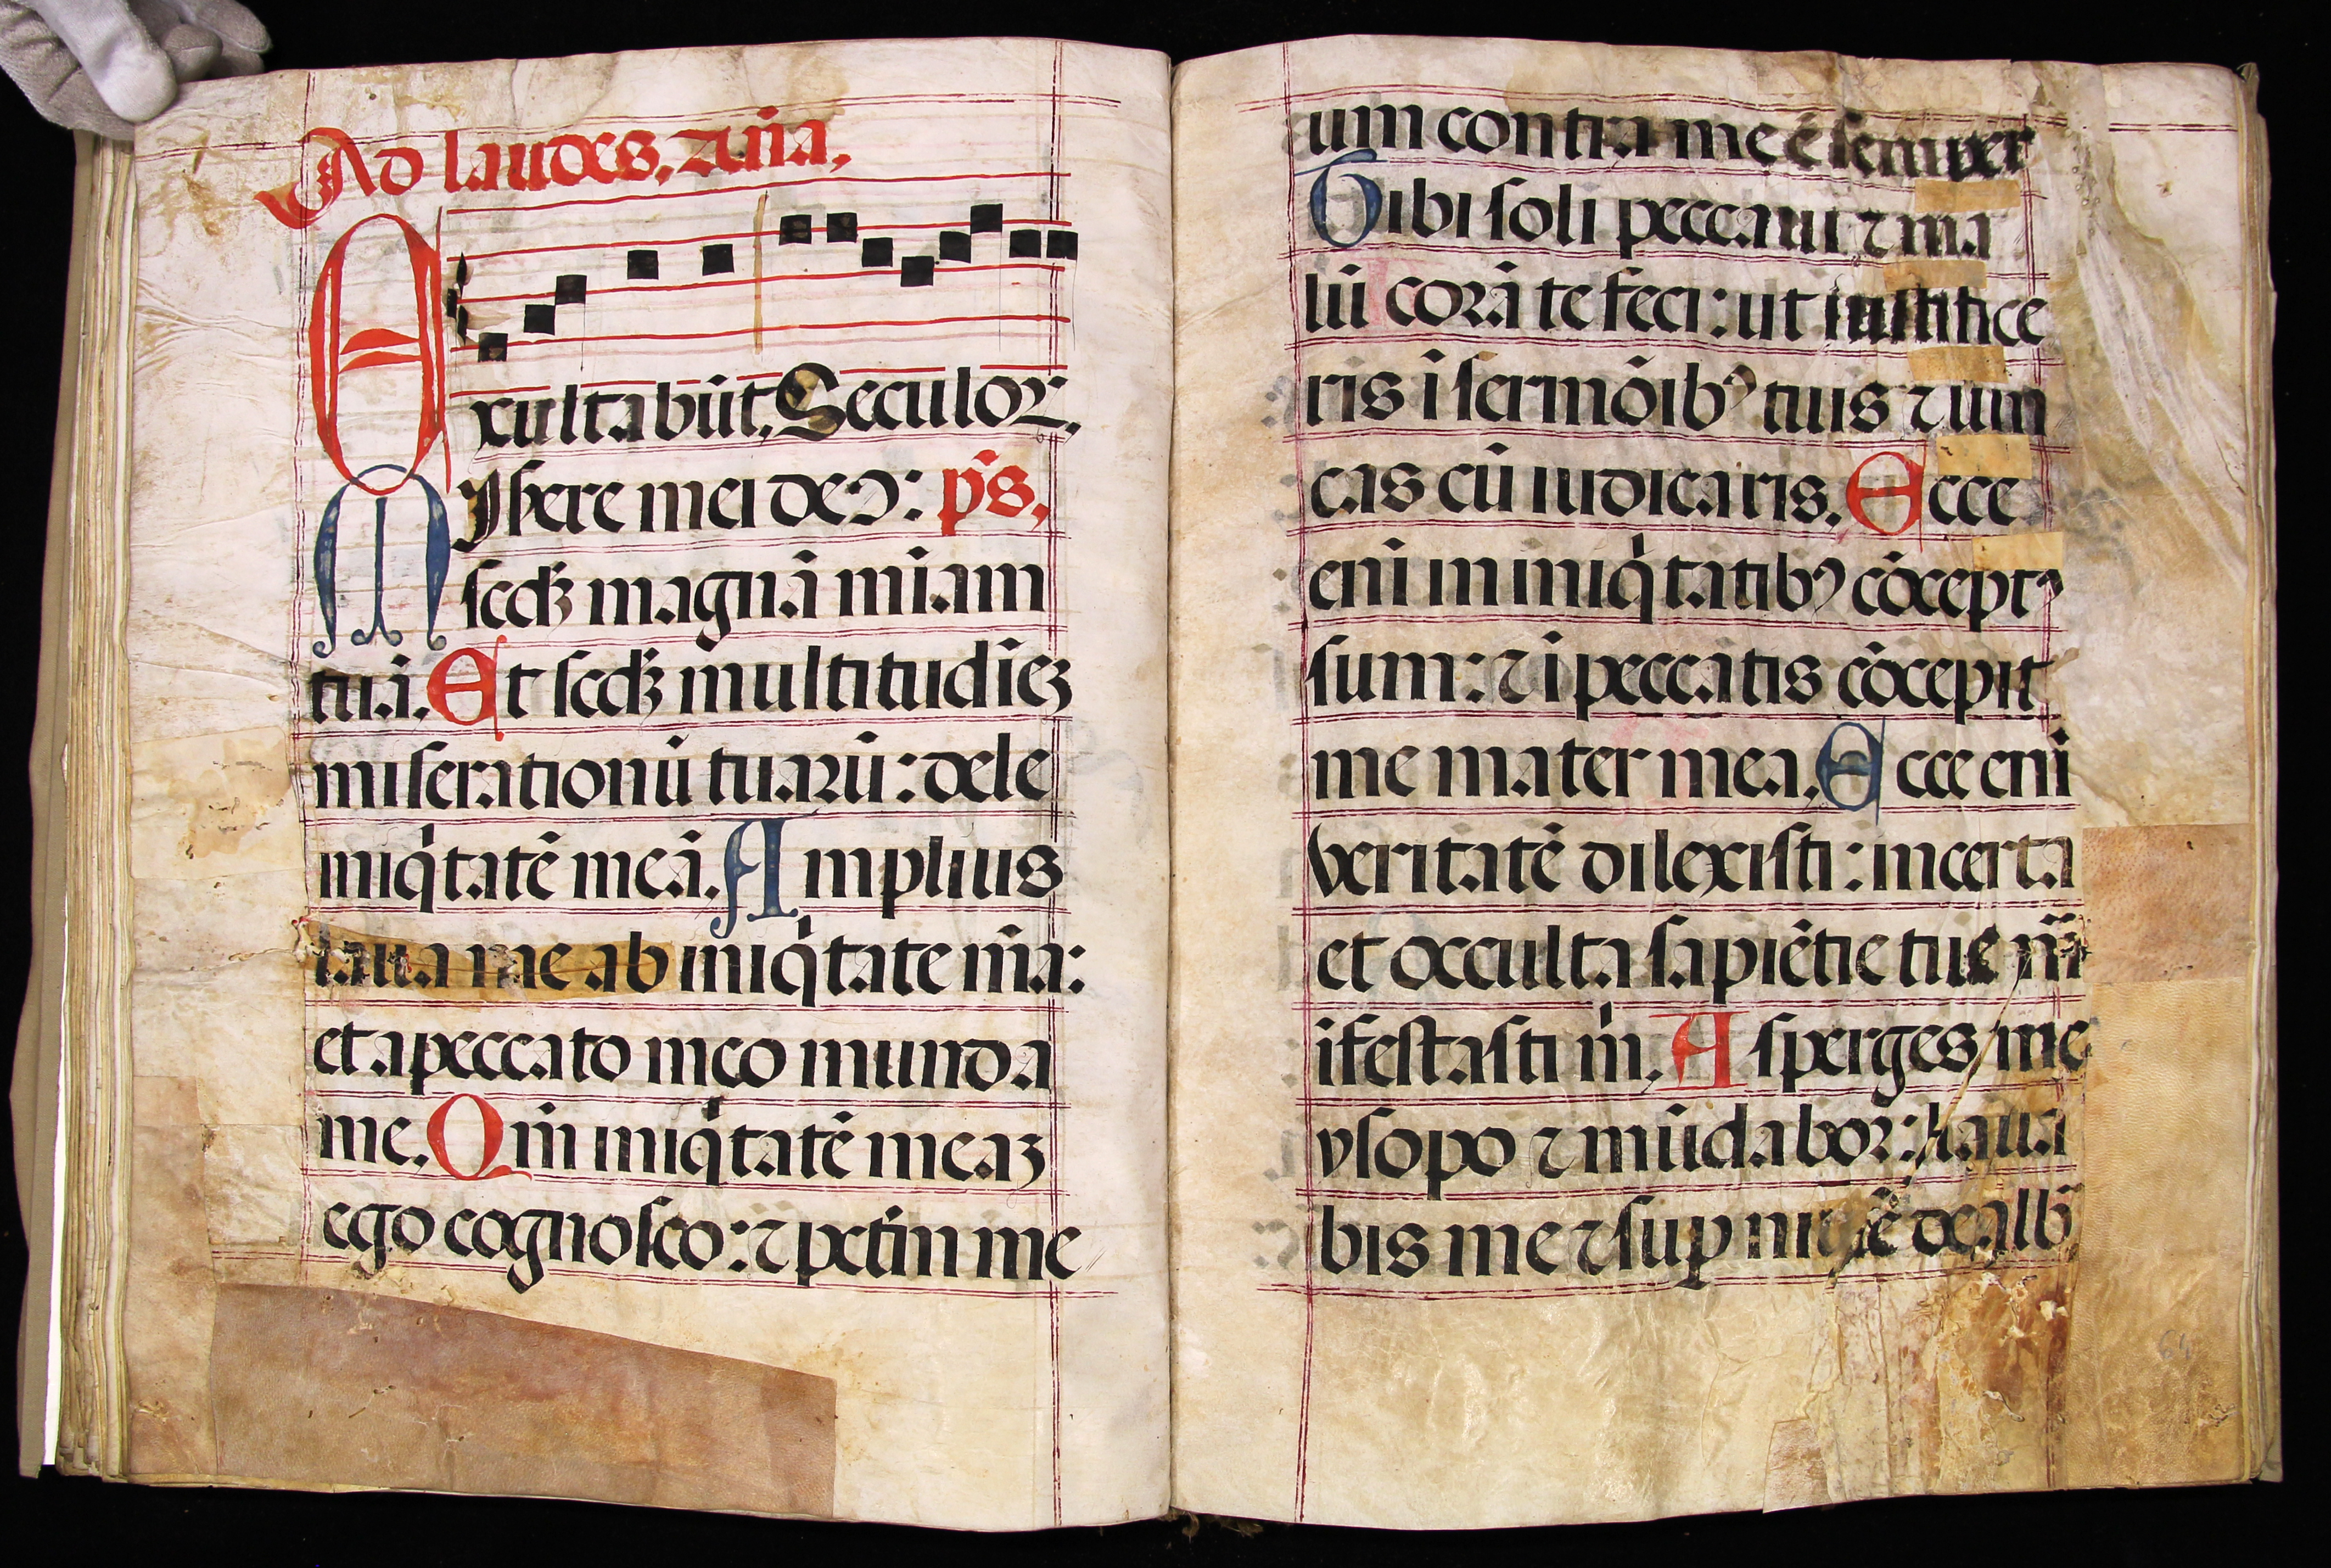 Ad laudes, añā,
Exultabūt, Seculoꝝ,
Misere mei deꝰ: p̄s,
scd̄ꝫ magnā mīam
tuā. Et scd̄ꝫ multitudīeꝫ
miserationū tuarū: dele
iniqͥtatē meā. Amplius
laua me ab iniqͥtate m̄a:
et a peccato meo munda
me. Qm̄ iniqͥtatē meaꝫ
ego cognosco: ⁊ pctm̄ me
um contra me ē semper
Tibi soli peccaui ⁊ ma
lū corā te feci: ut iustifice
ris ī sermōibꝰ tuis ⁊ uin
cas cū iudicaris. Ecce
enī in iniqͥtatibꝰ cōceptꝰ
sum: ⁊ ī peccatis cōcepit
me mater mea. Ecce enī
veritatē dilexisti: incerta
et occulta sapiētie tue mā
ifestasti m̊. Asperges me
ysopo ⁊ mūdabor: laua
bis me ⁊ suꝑ niuē dealb̄
64